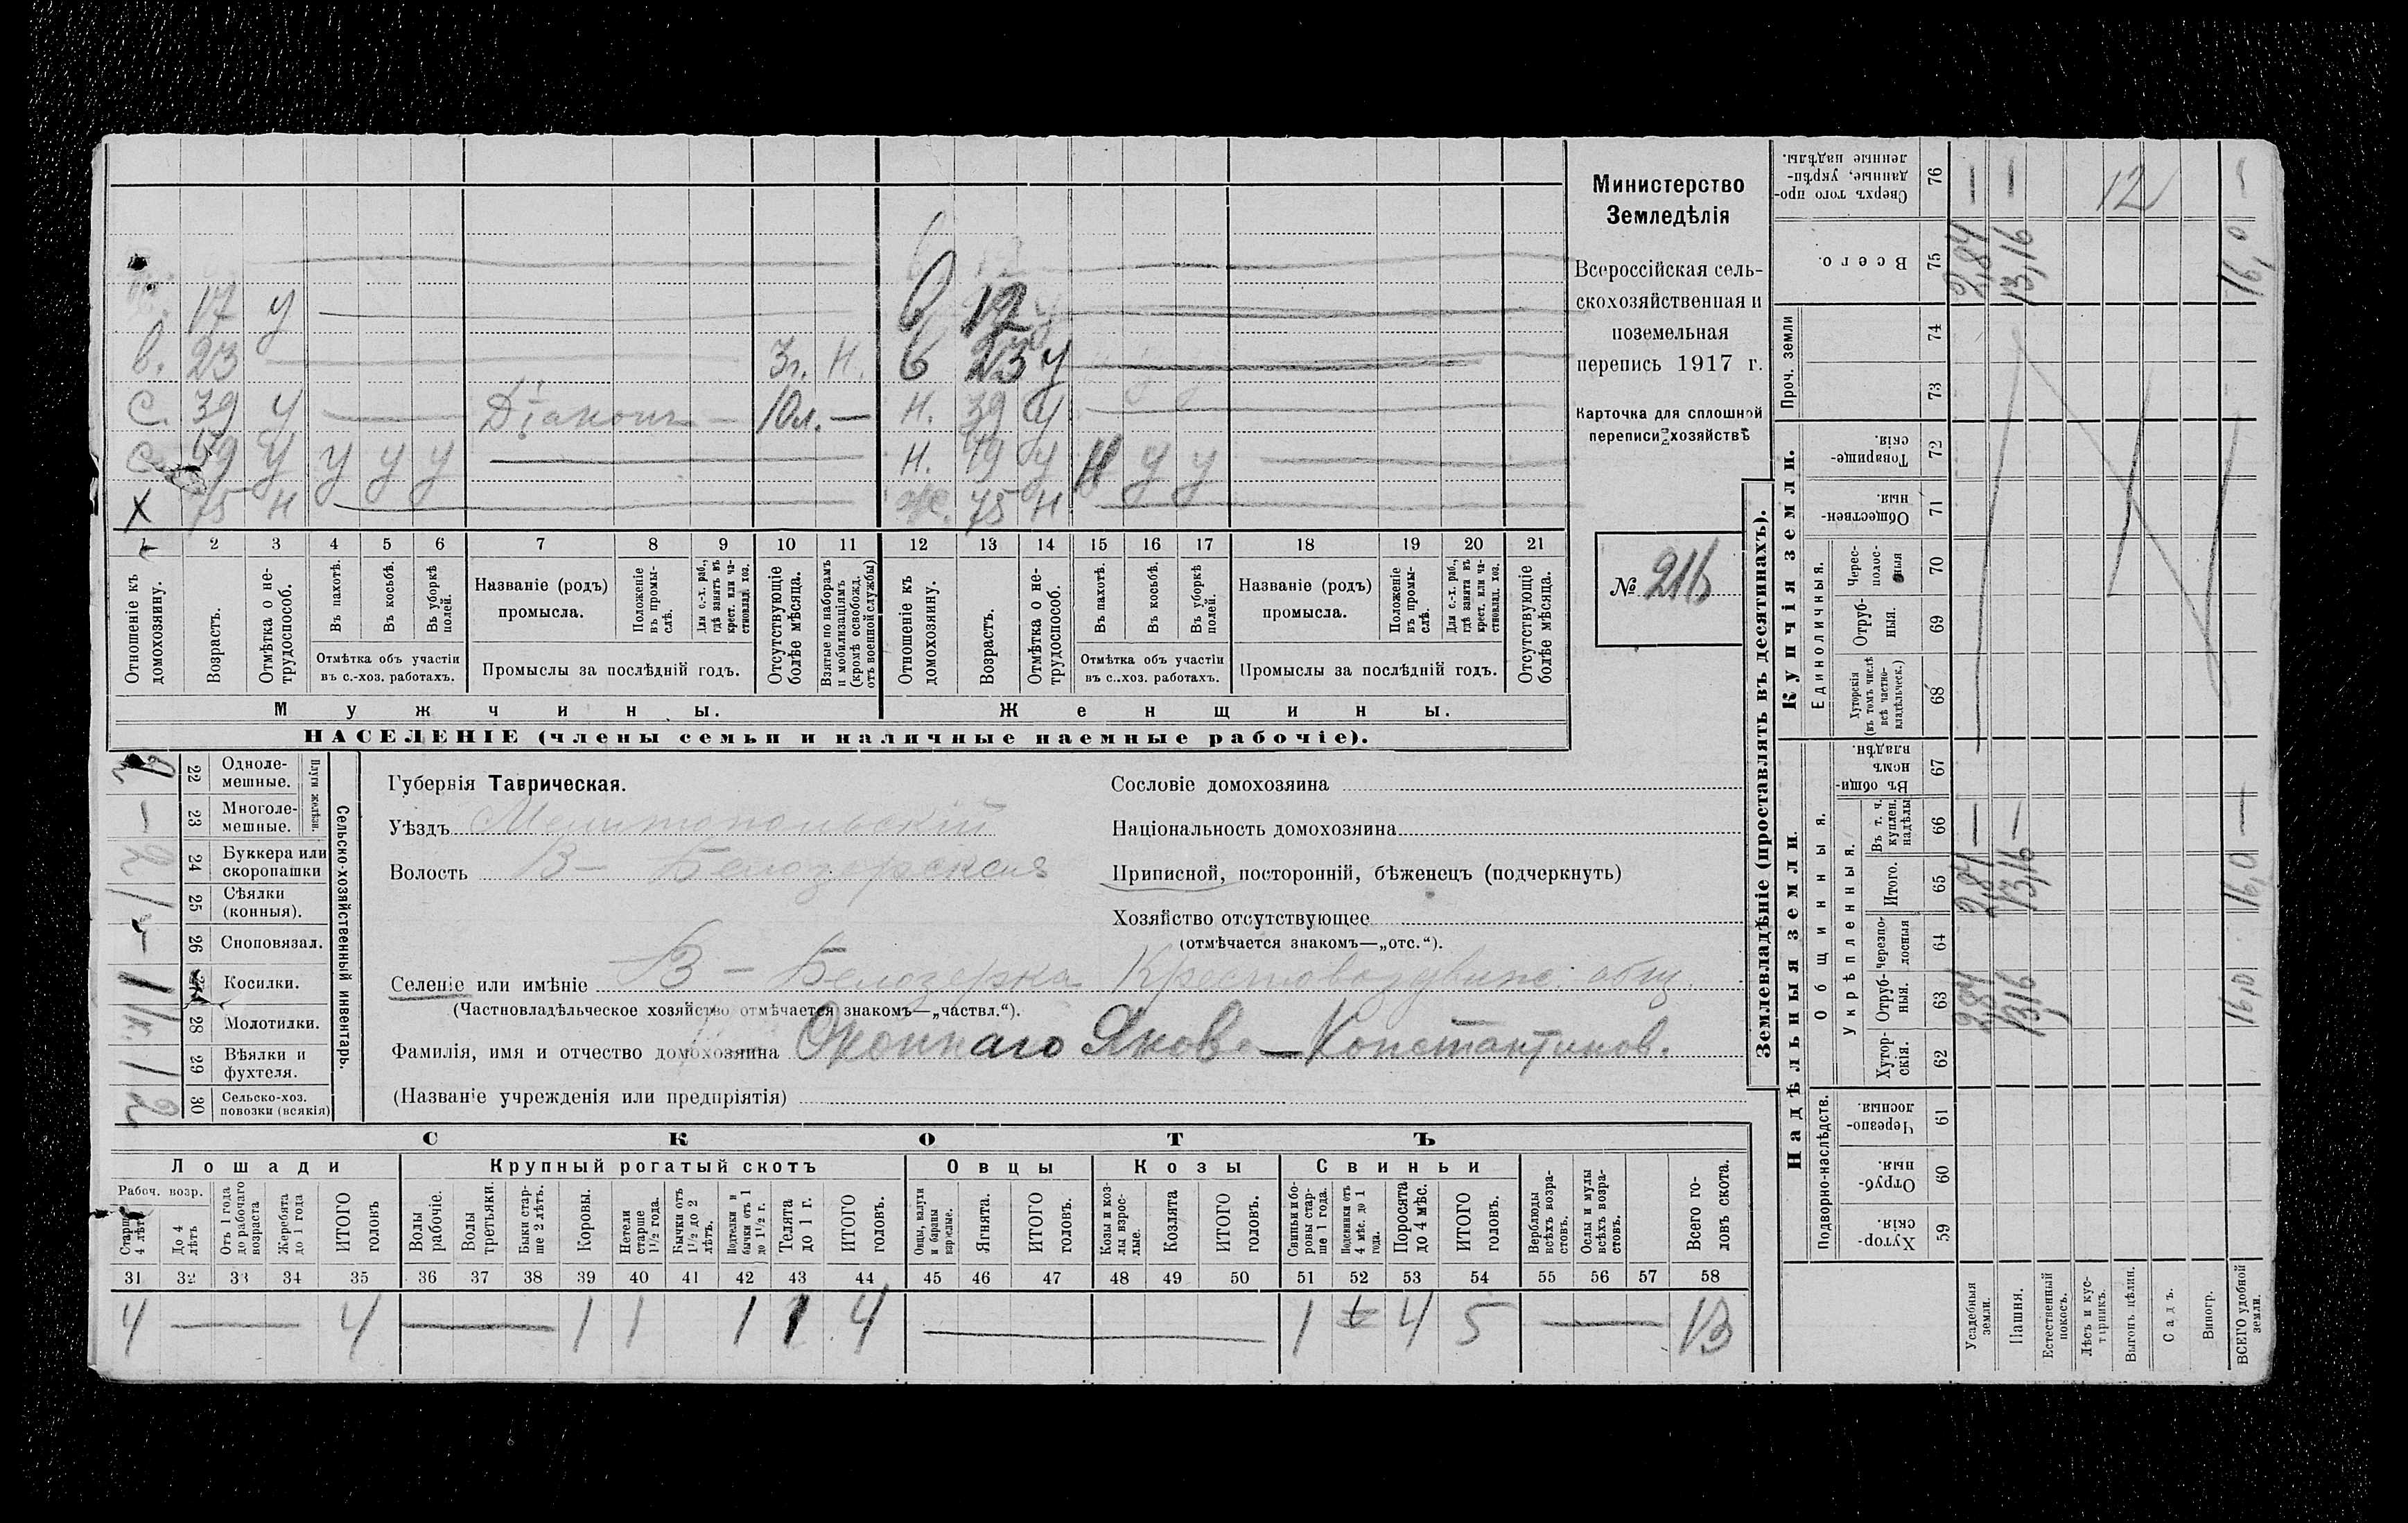 17 у
в. 23 3г. Н.
С. 39 у — Діаконъ — 10л. —
59 у у у у
Х 75 н
в 12
в 23 у
Н. 39 у
Н. 49 у Н у у
Ж. 75 н
1 2 3 4 5 6 7 8 9 10 11 12 13 14 15 16 17 18 19 20 21
Отношеніе къ домохозяину.
Возрастъ.
Отмѣтка о не-трудоспособ.
Въ пахотѣ.
Въ косьбѣ.
Въ уборкѣ полей.
Отмѣтка объ участіи въ с.-хоз. работахъ.
Названіе (родъ) промысла.
Положеніе въ промы-слѣ.
Для с.-х. раб., гдѣ занятъ въ крест. или ча-стновлад. хоз.
Промыслы за послѣдній годъ.
Отсутствующіе болѣе мѣсяца.
Взятые по наборамъ и мобилизаціямъ (кромѣ освобожд. отъ военной службы)
Отношеніе къ домохозяину.
Возрастъ.
Отмѣтка о не-трудоспособ.
Въ пахотѣ.
Въ косьбѣ.
Въ уборкѣ полей.
Отмѣтка объ участіи въ с..хоз. работахъ.
Названіе (родъ) промысла.
Положеніе въ промы-слѣ.
Для с.-х. раб., гдѣ занята въ крест. или ча-стновлад. хоз.
Промыслы за послѣдній годъ.
Отсутствующіе болѣе мѣсяца.
Мужчины. Женщины.
НАСЕЛЕНІЕ (члены семьи и наличные наемные рабочіе).
Министерство
Земледѣлія
Всероссійская сель-
скохозяйственная и
поземельная
перепись 1917 г.
Карточка для сплошной
переписи хозяйствъ
№ 216
22 Одноле-мешные.
— 23 Многоле-мешные.
Плуги желѣзн.
2 24 Буккера или скоропашки
1 25 Сѣялки (конныя).
— 26 Сноповязал.
1 27 Косилки.
1/к. 28 Молотилки.
1 29 Вѣялки и фухтеля.
2 30 Сельско-хоз. повозки (всякія)
Сельско-хозяйственный инвентарь.
Губернія Таврическая.
Уѣздъ Мелитопольскій
Волость В — Белозерская
Селеніе или имѣніе В — Белозерка Крестовоздвиж. общ.
(Частновладѣльческое хозяйство отмѣчается знакомъ—„частвл.“).
Фамилія, имя и отчество домохозяина Яков — Константинов.
(Названіе учрежденія или предпріятія)
Сословіе домохозяина
Національность домохозяина
Приписной, посторонній, бѣженецъ (подчеркнуть)
Хозяйство отсутствующее
(отмѣчается знакомъ—„отс.“).
СКОТЪ
Лошади Крупный рогатый скотъ Овцы Козы Свиньи
Рабоч. возр.
Старше 4 лѣтъ
До 4 лѣтъ
Отъ 1 года до рабочаго возраста
Жеребята до 1 года
ИТОГО головъ
Волы рабочіе.
Волы третьяки.
Быки стар-ше 2 лѣтъ.
Коровы.
Нетели старше 1½ года.
Бычки отъ 1½ до 2 лѣтъ.
Подтелки и бычки отъ 1 до 1½ г.
Телята до 1 г.
ИТОГО головъ.
Овцы, валухи и бараны взрослые.
Ягнята.
ИТОГО головъ.
Козы и коз-лы взрос-лые.
Козлята
ИТОГО головъ.
Свиньи и бо-ровы стар-ше 1 года.
Подсвинки отъ 4 мѣс. до 1 года.
Поросята до 4 мѣс.
ИТОГО головъ.
Верблюды всѣхъ возра-стовъ.
Ослы и мулы всѣхъ возра-стовъ.
Всего го-ловъ скота.
31 32 33 34 35 36 37 38 39 40 41 42 43 44 45 46 47 48 49 50 51 52 53 54 55 56 57 58
4 — 4 — 1 1 1 1 4 — 1 4 5 — 13
Землевладѣніе (проставлять въ десятинахъ).
Надѣльныя земли. Купчія земли. Проч. земли
Подворно-наслѣдств.
Общинныя.
Укрѣпленныя.
Единоличныя.
Хутор-скія. 59
Отруб-ныя. 60
Черезпо-лосныя. 61
Хутор-скія. 62
Отруб-ныя. 63 2,84 13,16 16,0
Черезпо-лосныя 64
Итого. 65 2,84 13,16 16,0
Въ т. ч. куплен. надѣлы 66 — — —
Въ общи-номъ владѣн. 67
Хуторскія (въ томъ числѣ всѣ частно-владѣльческ.) 68
Отруб-ныя. 69
Черес-полос-ныя 70
Обществен-ныя. 71
Товарище-скія. 72
73
74
Всего. 75 2,84 13,16 16,0
Сверхъ того про-данные, укрѣп-ленные надѣлы. 76 — — 12 —
Усадебныя земли.
Пашня.
Естественный покосъ.
Лѣсъ и кус-тарникъ.
Выгонъ цѣлин.
Садъ.
Виногр.
ВСЕГО удобной земли.